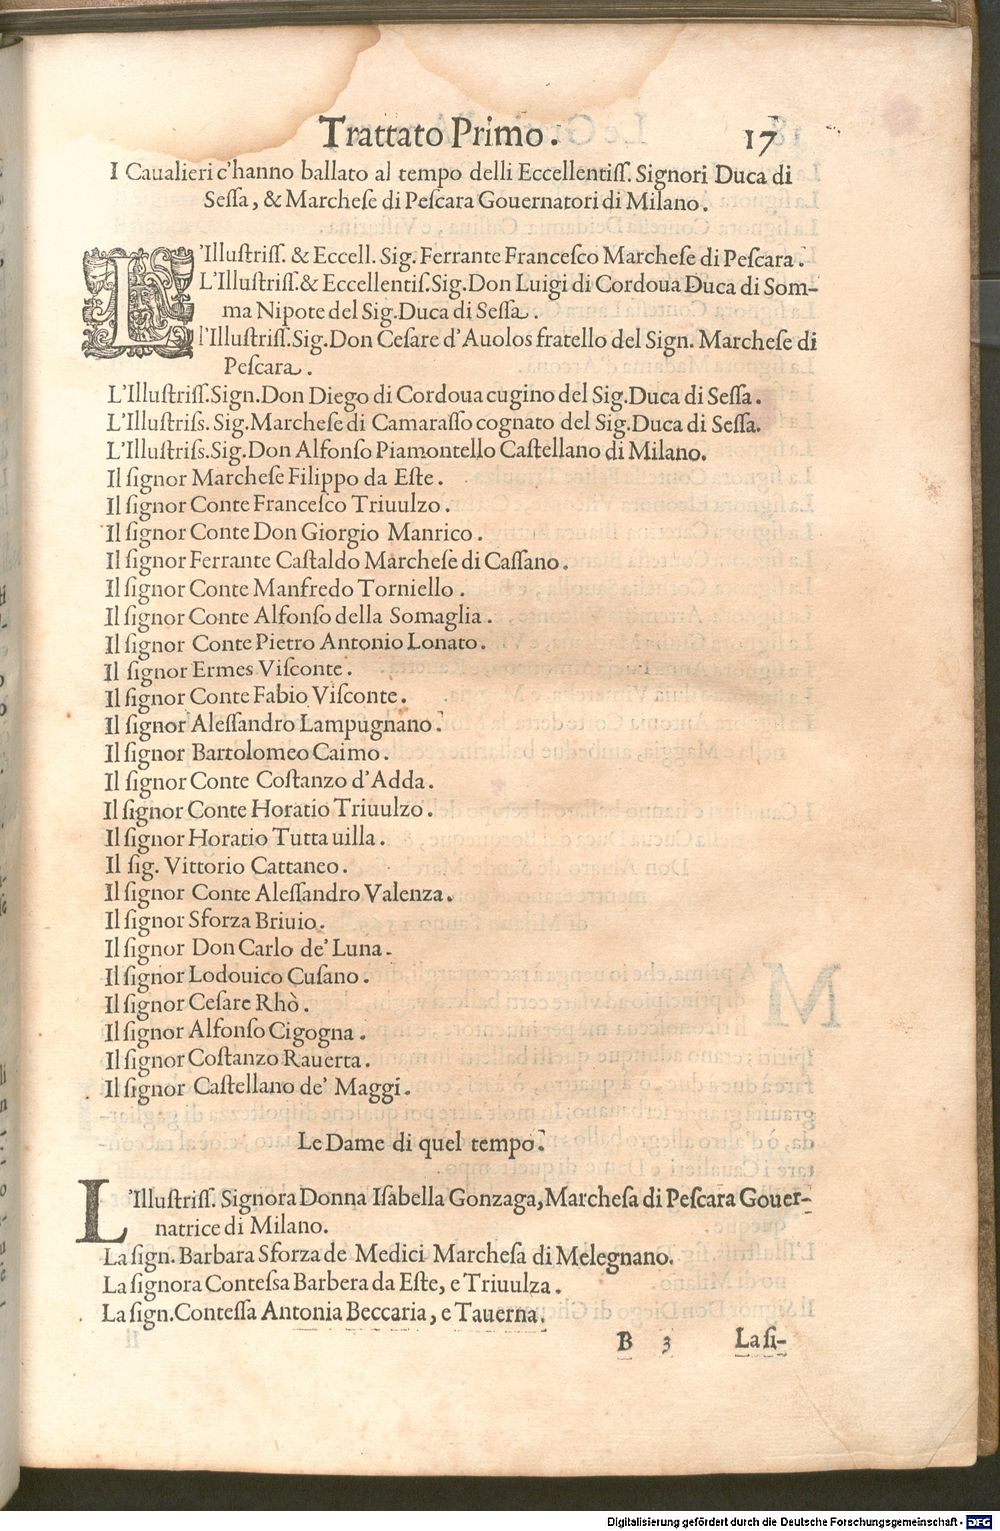 Trattato Primo. 17
I Caualieri c'hanno ballato al tempo delli Eccellentiſſ. Signori Duca di
Seſſa, & Marcheſe di Peſcara Gouernatori di Milano.
L'Illuſtriſſ. & Eccell. Sig. Ferrante Franceſco Marcheſe di Peſcara.
L'Illuſtriſſ.& Eccellentiſ.Sig.Don Luigi di Cordoua Duca di Som-
ma Nipote del Sig.Duca di Seſſa.
l'Illuſtriſſ.Sig.Don Ceſare d'Auolos fratello del Sign. Marcheſe di
Peſcara.
L'Illuſtriſſ.Sign.Don Diego di Cordoua cugino del Sig.Duca di Seſſa.
L'Illuſtriſs. Sig.Marcheſe di Camaraſſo cognato del Sig.Duca di Seſſa.
L'Illuſtriſs.Sig.Don Alfonſo Piamontello Caſtellano di Milano.
Il ſignor Marcheſe Filippo da Eſte.
Il ſignor Conte Franceſco Triuulzo.
Il ſignor Conte Don Giorgio Manrico.
Il ſignor Ferrante Caſtaldo Marcheſe di Caſſano.
Il ſignor Conte Manfredo Torniello.
Il ſignor Conte Alfonſo della Somaglia.
Il ſignor Conte Pietro Antonio Lonato.
Il ſignor Ermes Viſconte.
Il ſignor Conte Fabio Viſconte.
Il ſignor Aleſſandro Lampugnano.
Il ſignor Bartolomeo Caimo.
Il ſignor Conte Coſtanzo d'Adda.
Il ſignor Conte Horatio Triuulzo.
Il ſignor Horatio Tutta uilla.
Il ſig. Vittorio Cattaneo.
Il ſignor Conte Aleſſandro Valenza.
Il ſignor Sforza Briuio.
Il ſignor Don Carlo de' Luna.
Il ſignor Lodouico Cuſano.
Il ſignor Ceſare Rhò.
Il ſignor Alfonſo Cigogna.
Il ſignor Coſtanzo Rauerta.
Il ſignor Caſtellano de' Maggi.
Le Dame di quel tempo.
L'Illuſtriſſ. Signora Donna Iſabella Gonzaga, Marcheſa di Peſcara Gouer-
natrice di Milano.
La ſign. Barbara Sforza de Medici Marcheſa di Melegnano.
La ſignora Conteſsa Barbera da Eſte, e Triuulza.
La ſign.Conteſſa Antonia Beccaria, e Tauerna.
B 3 La ſi-
Digitalisierung gefördert durch die Deutsche Forschungsgemeinschaft - DFG